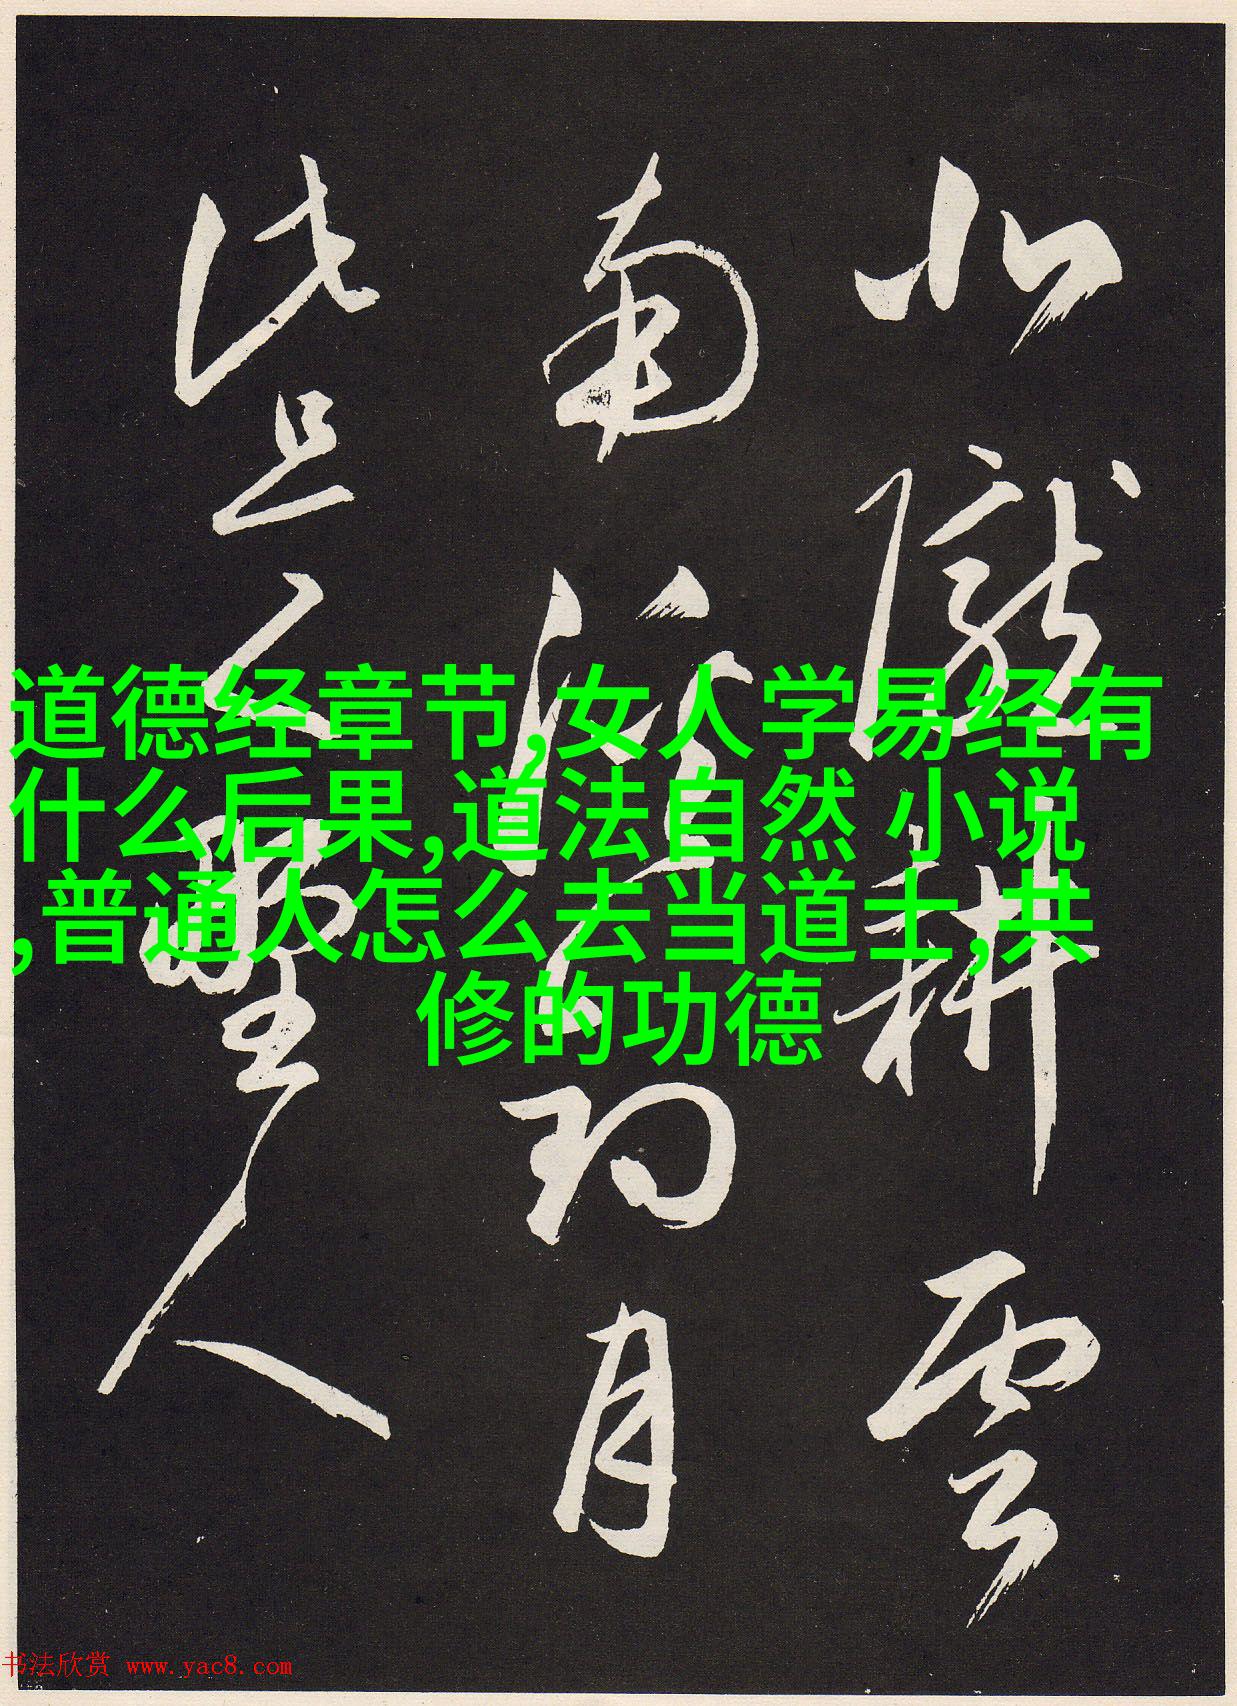 北隴耕雲
南溪釣月
此是野人
道德经章节,女人学易经有
什么后果,道法自然 小说
,普通人怎么去当道士,共
修的功德
书法欣赏 www.yac8.com